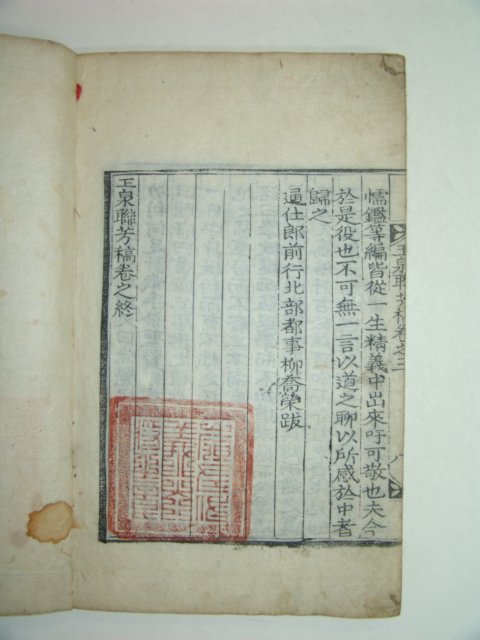 王泉聯芳稿卷之二
懦鑑等編皆從一生精義中出來吁可敬也夫今
於是役也不可無一言以道之聊以所感於中者
歸之
通仕郎前行北部都事柳喬榮跋
王泉聯芳稿卷之終